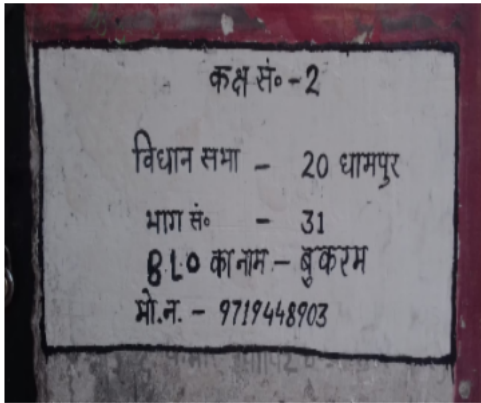 कक्ष सं० - 2
विधान सभा - 20 धामपुर
भाग सं० - 31
B.L.O का नाम - बुकरम
मो.न. - 9719448903